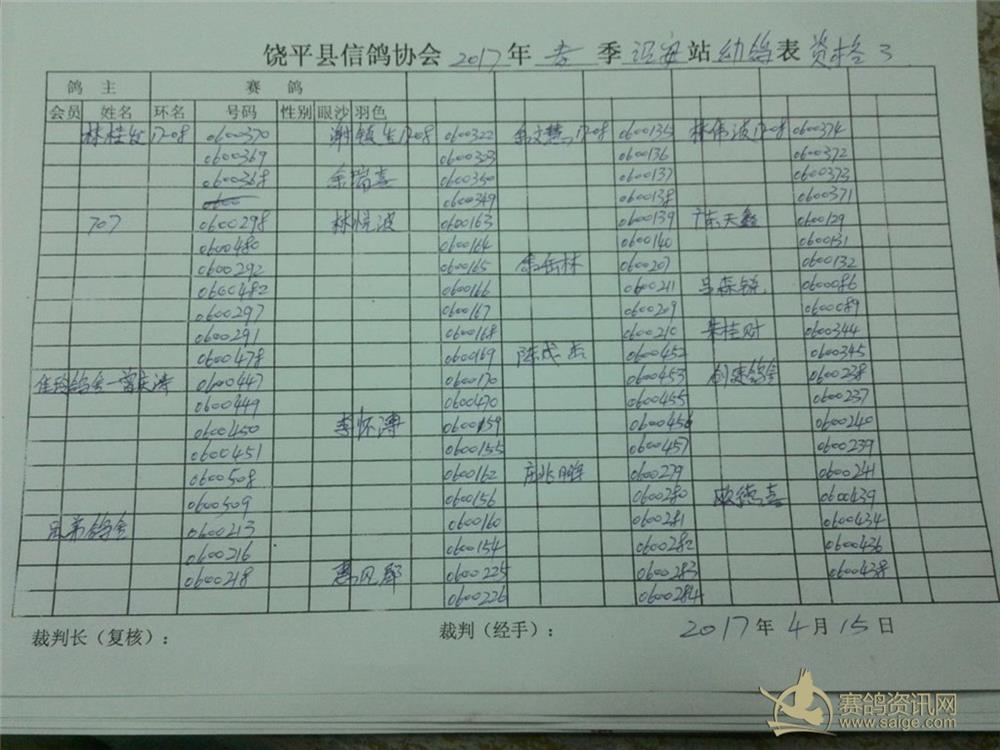 饶平县信鸽协会 2017 年 春 季 诏安 站 幼鸽 表 资格 3
鸽 主 赛 鸽
会员 姓名 环名 号码 性别 眼沙 羽色
林桂发 17-08 0600370 谢镇生 17-08 0600322 余文慧 17-08 0600135 林伟波 17-08 0600374
0600369 0600323 0600136 0600372
0600368 余瑞喜 0600350 0600137 0600373
0600349 0600138 0600371
707 0600298 林悦波 0600163 0600139 陈天鑫 0600129
0600480 0600164 0600140 0600131
0600292 0600165 林 0600207 0600132
0600482 0600166 0600211 0600086
0600297 0600167 0600209 0600089
0600291 0600168 0600210 朱桂财 0600344
0600478 0600169 陈茂杰 0600452 0600345
鸽舍一 0600447 0600170 0600453 鸽舍 0600238
0600449 0600470 0600455 0600237
0600450 李怀溥 0600159 0600456 0600240
0600451 0600155 0600457 0600239
0600508 0600162 庄兆明 0600279 0600241
0600509 0600156 0600280 喜 0600439
兄弟鸽舍 0600213 0600160 0600281 0600434
0600216 0600154 0600282 0600436
0600218 0600225 0600283 0600438
0600226 0600284
裁判长（复核）： 裁判（经手）： 2017 年 4 月 15 日
赛鸽资讯网
www.saige.com